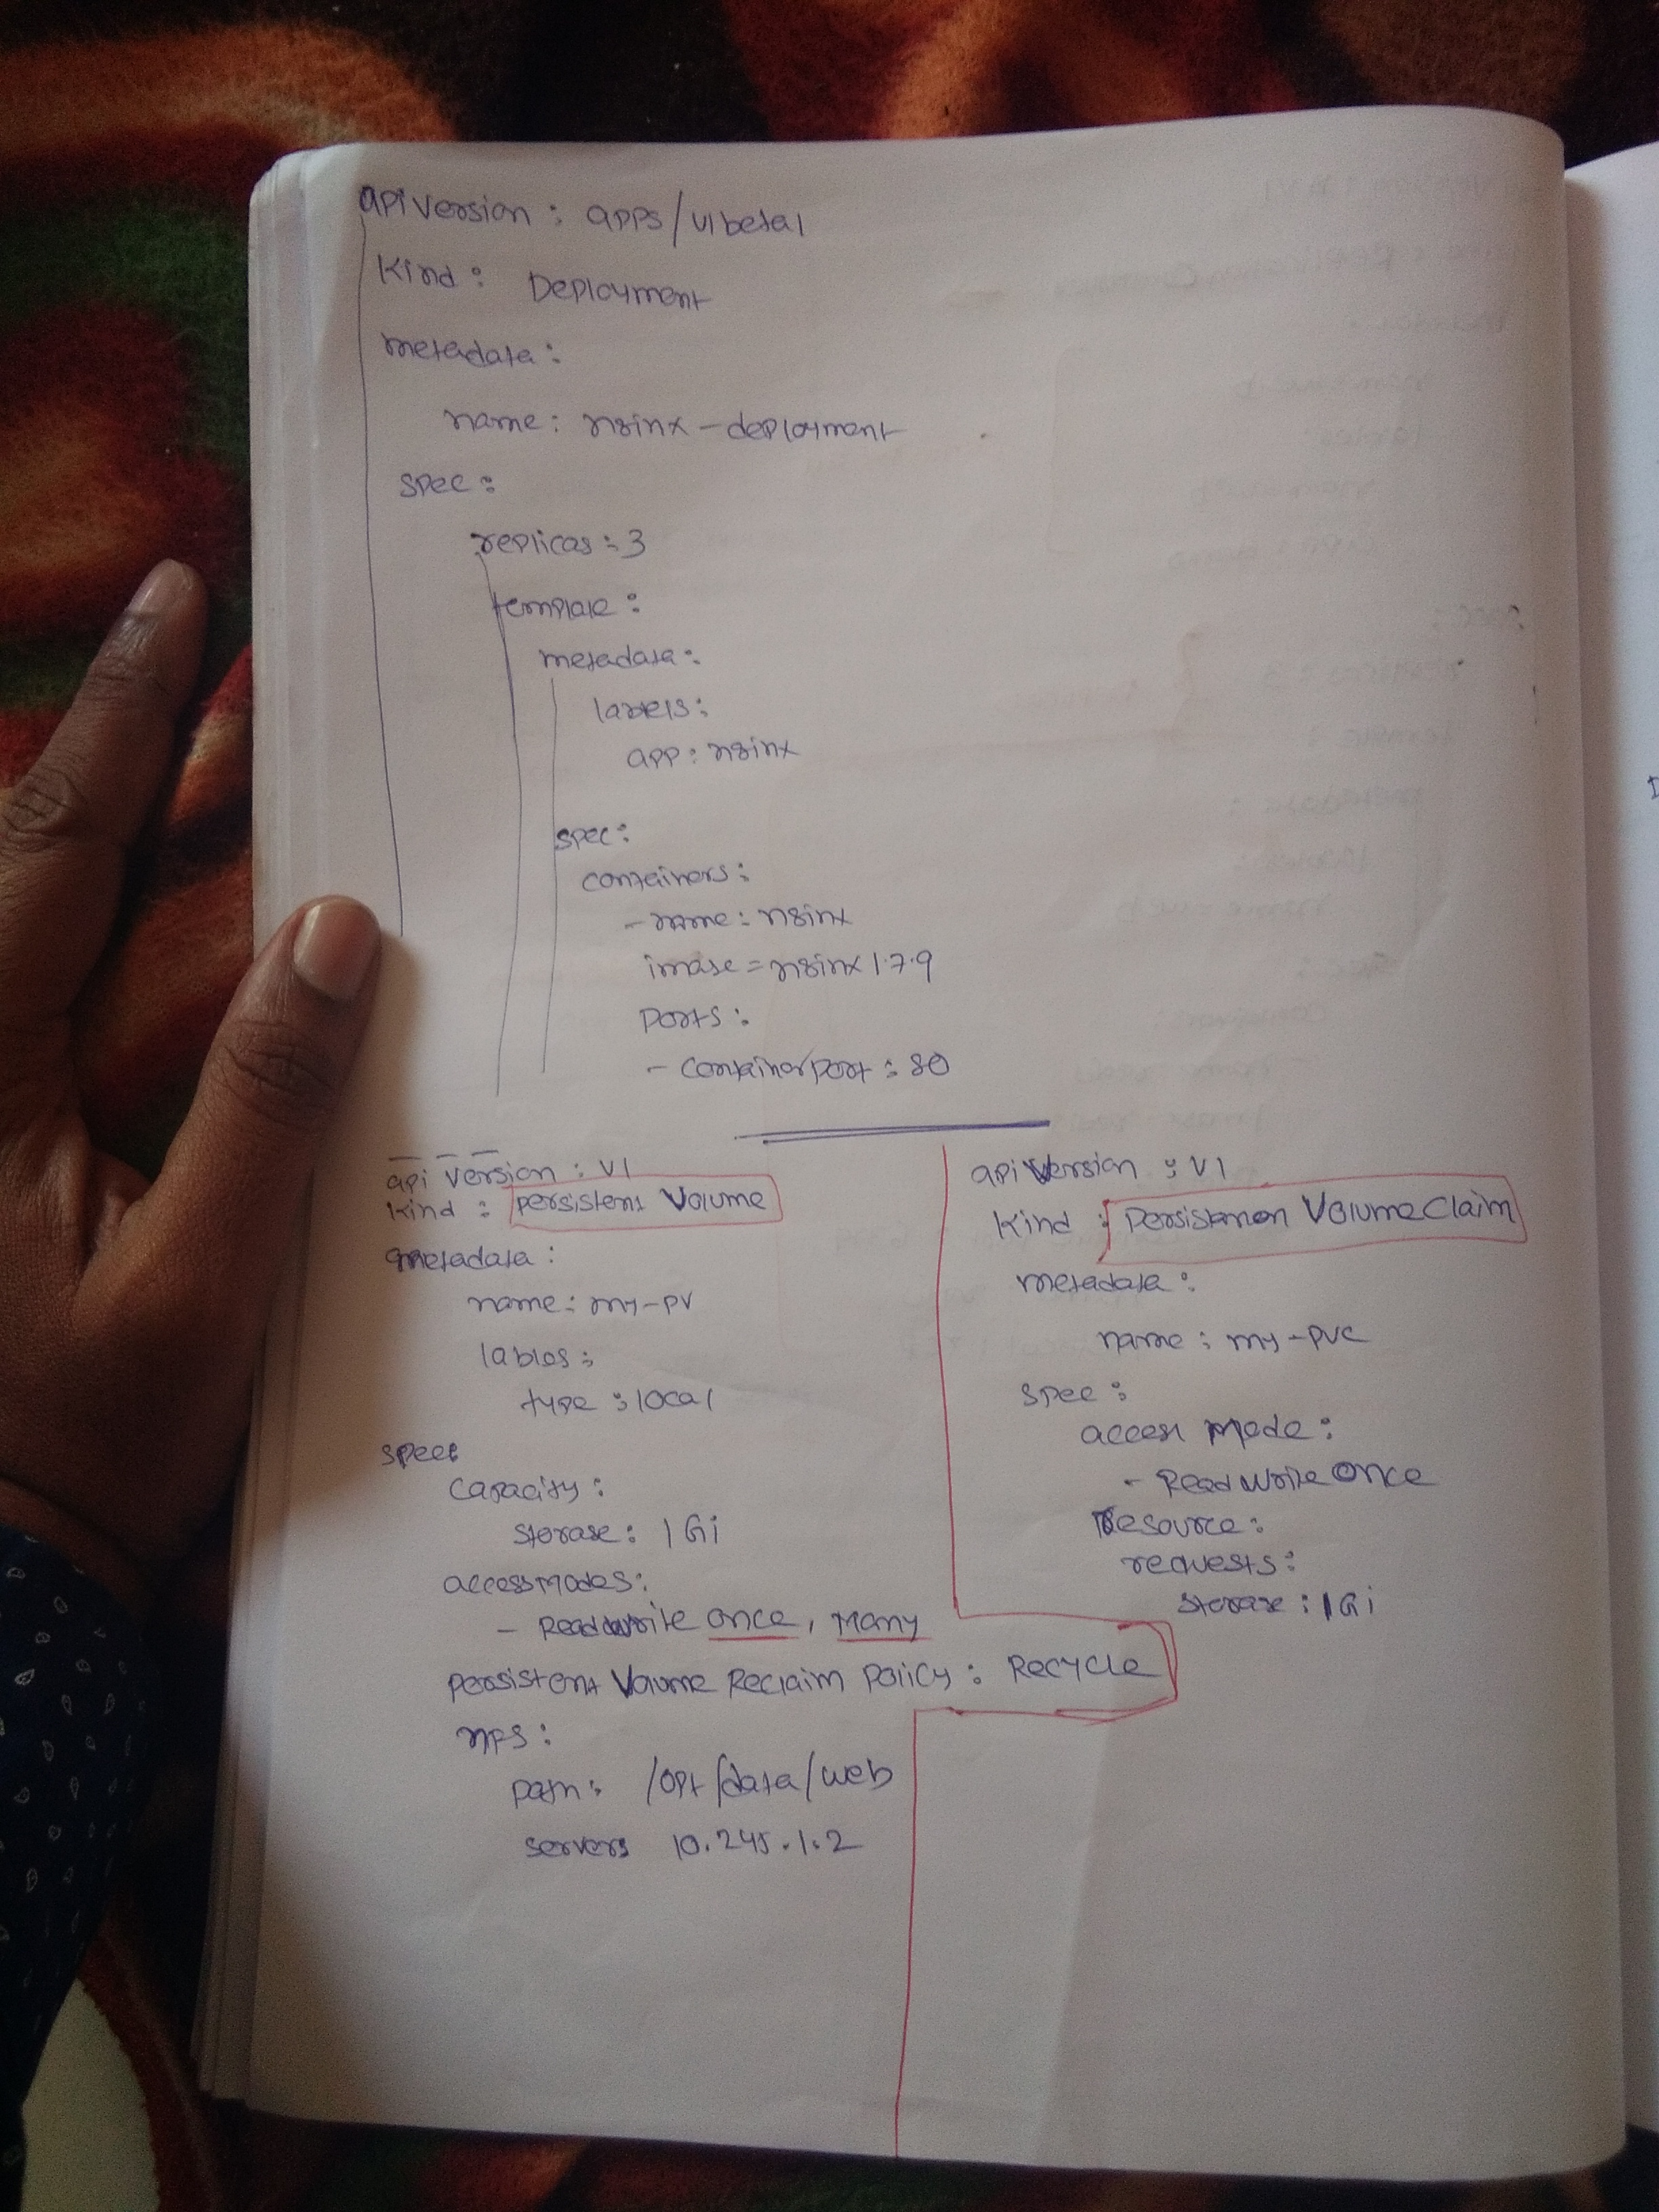 apiversion : apps/v1beta1
Kind : Deployment
metadata :
name : nginx-deployment
spec :
replicas : 3
template :
metadata :
labels :
app : nginx
spec :
containers :
- name : nginx
image = nginx 1.7.9
Ports :
- containerport : 80
api version : V1
kind : persistent Volume
metadata :
name : my-pv
lables :
type : local
spec :
capacity :
storage : 1Gi
accessModes :
- Readwrite once, Many
persistent Volume Reclaim Policy : Recycle
nfs :
path : /opt/data/web
servers 10.245.1.2
api version : V1
Kind : Persistenen VolumeClaim
metadata :
name : my-pvc
spec :
access Mode :
- Read write once
Resource :
requests :
storage : 1Gi